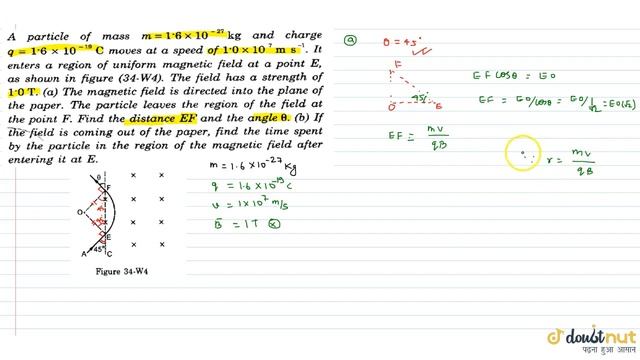 A particle of mass m = 1·6 × 10⁻²⁷ kg and charge
q = 1·6 × 10⁻¹⁹ C moves at a speed of 1·0 × 10⁷ m s⁻¹. It
enters a region of uniform magnetic field at a point E,
as shown in figure (34-W4). The field has a strength of
1·0 T. (a) The magnetic field is directed into the plane of
the paper. The particle leaves the region of the field at
the point F. Find the distance EF and the angle θ. (b) If
the field is coming out of the paper, find the time spent
by the particle in the region of the magnetic field after
entering it at E.
θ
F
O
E
A
45°
C
Figure 34-W4
m = 1.6 × 10⁻²⁷ Kg
q = 1.6 × 10⁻¹⁹ C
v = 1 × 10⁷ m/s
B = 1T ⊗
ⓐ
θ = 45°
F
O
45°
E
EF cosθ = EO
EF = EO/cosθ = EO/1/√2 = EO(√2)
EF = mv/qB
r = mv/qB
doubtnut
पढ़ना हुआ आसान